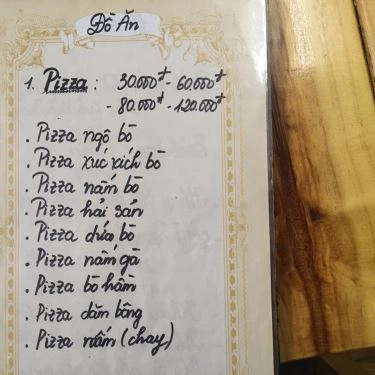 Đồ Ăn
1. Pizza : 30.000đ - 60.000đ
- 80.000đ - 120.000đ
. Pizza ngô bò
. Pizza xúc xích bò
. Pizza nấm bò
. Pizza hải sản
. Pizza dứa bò
. Pizza nấm gà
. Pizza bò hầm
. Pizza dăm bông
. Pizza nấm (chay)